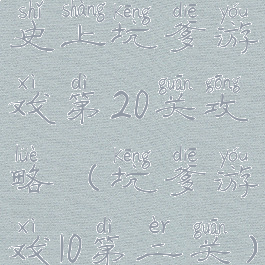 shǐ shàng kēng diē yóu
史上坑爹游
xì dì guān gōng
戏第20关攻
lüè kēng diē yóu
略（坑爹游
xì dì èr guān
戏10第二关）